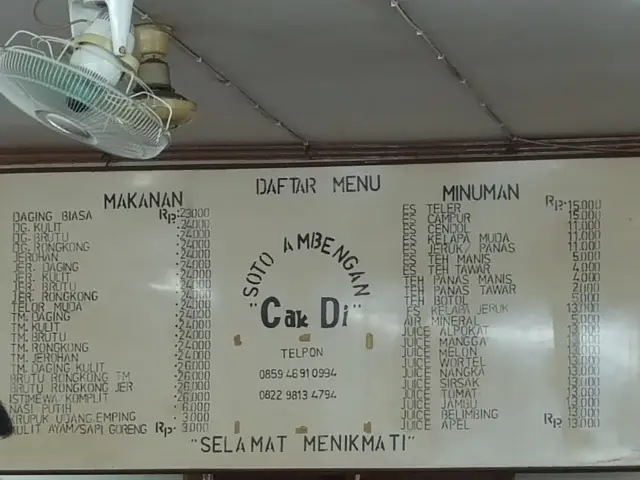 DAFTAR MENU
MAKANAN
DAGING BIASA Rp. 23.000
DG. KULIT 24.000
DG. BRUTU 24.000
DG. RONGKONG 24.000
JEROHAN 24.000
JER. DAGING 24.000
JER. KULIT 24.000
JER. BRUTU 24.000
JER. RONGKONG 24.000
TELOR MUDA 24.000
TM. DAGING 24.000
TM. KULIT 24.000
TM. BRUTU 24.000
TM. RONGKONG 24.000
TM. JEROHAN 24.000
TM. DAGING KULIT 26.000
BRUTU RONGKONG TM 26.000
BRUTU RONGKONG JER 26.000
ISTIMEWA/KOMPLIT 26.000
NASI PUTIH 6.000
KRUPUK UDANG,EMPING 3.000
KULIT AYAM/SAPI GORENG Rp.
"SOTO AMBENGAN"
Cak Di
TELPON
0859 4691 0994
0822 9813 4794
MINUMAN
ES TELER Rp. 15.000
ES CAMPUR 15.000
ES CENDOL 11.000
ES KELAPA MUDA 11.000
ES JERUK/ PANAS 11.000
ES TEH MANIS 5.000
ES TEH TAWAR 4.000
TEH PANAS MANIS 4.000
TEH PANAS TAWAR 2.000
TEH BOTOL 5.000
ES KELAPA JERUK 13.000
AIR MINERAL 5.000
JUICE ALPOKAT 13.000
JUICE MANGGA 13.000
JUICE MELON 13.000
JUICE WORTEL 13.000
JUICE NANGKA 13.000
JUICE SIRSAK 13.000
JUICE TUMAT 13.000
JUICE JAMBU 13.000
JUICE BELIMBING 13.000
JUICE APEL Rp 13.000
"SELAMAT MENIKMATI"